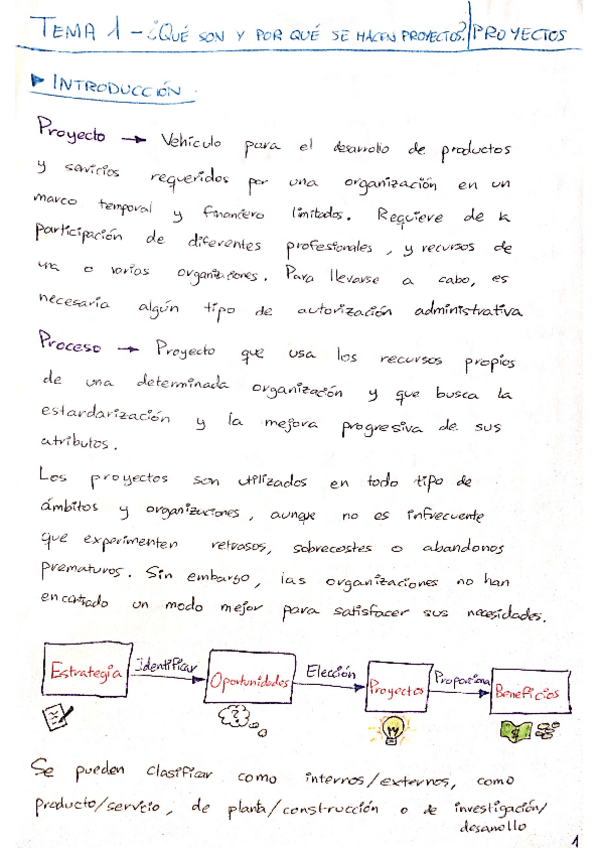 TEMA 1 - ¿QUÉ SON Y POR QUÉ SE HACEN PROYECTOS? PROYECTOS
INTRODUCCIÓN
Proyecto → Vehículo para el desarrollo de productos
y servicios requeridos por una organización en un
marco temporal y financiero limitados. Requiere de la
participación de diferentes profesionales, y recursos de
una o varios organizaciones. Para llevarse a cabo, es
necesaria algún tipo de autorización administrativa
Proceso → Proyecto que usa los recursos propios
de una determinada organización y que busca la
estardarización y la mejora progresiva de sus
atributos.
Los proyectos son utilizados en todo tipo de
ámbitos y organizaciones, aunque no es infrecuente
que experimenten retrasos, sobrecostes o abandonos
prematuros. Sin embargo, las organizaciones no han
encontrado un modo mejor para satisfacer sus necesidades.
Estrategia Identificar Oportunidades Elección Proyectos Proporciona Beneficios
$
Se pueden clasificar como internos/externos, como
producto/servicio, de planta/construcción o de investigación/
desarrollo
1